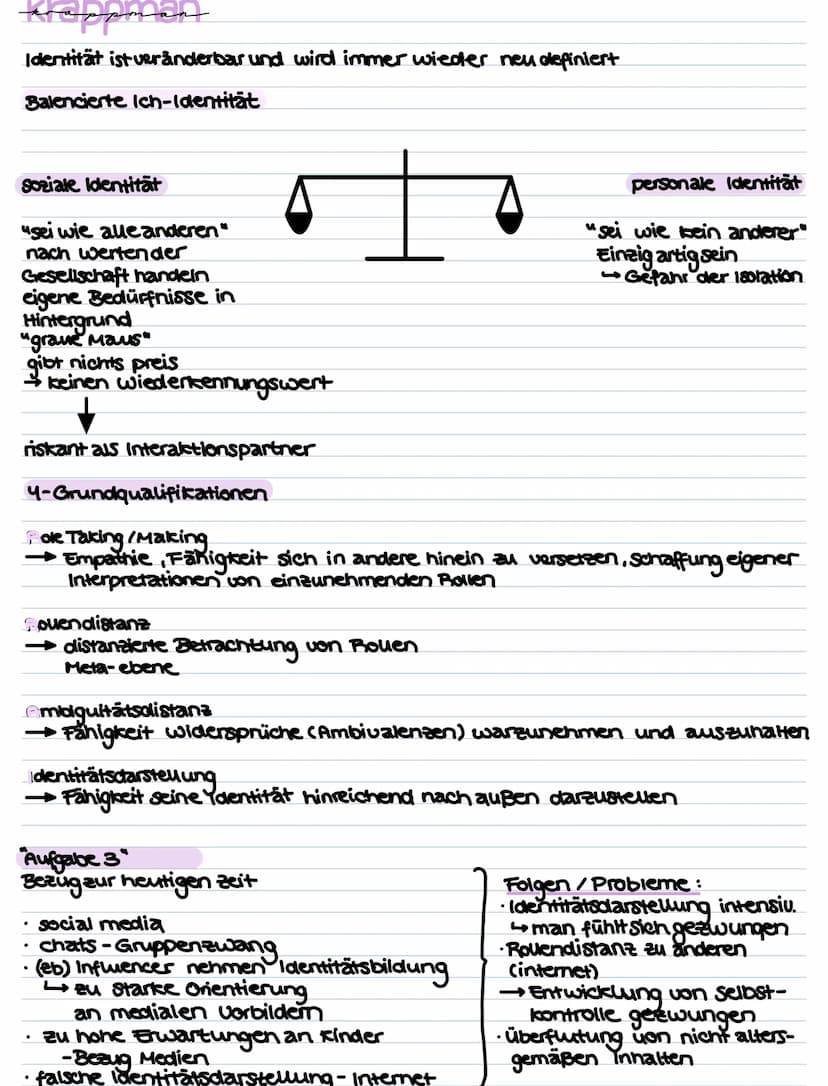 krappman
krappman
Identität ist veränderbar und wird immer wieder neu definiert
Balencierte Ich-Identität
soziale Identität
personale Identität
"sei wie alle anderen"
nach werten der
Gesellschaft handeln
eigene Bedürfnisse in
Hintergrund
"graue Maus"
gibt nichts preis
→ keinen wiederkennungswert
riskant als Interaktionspartner
"sei wie kein anderer"
Einzigartig sein
↳ Gefahr der Isolation
4-Grundqualifikationen
Role Taking / Making
→ Empathie, Fähigkeit sich in andere hinein zu versetzen, schaffung eigener
Interpretationen von einzunehmenden Rollen
Rollendistanz
→ distanzierte Betrachtung von Rollen
Meta-ebene
Ambiguitätsdistanz
→ Fähigkeit widersprüche (Ambivalenzen) warzunehmen und auszuhalten
Identitätsdarstellung
→ Fähigkeit seine Ydentität hinreichend nach außen darzustellen
"Aufgabe 3"
Bezug zur heutigen zeit
· social media
· chats - Gruppenzwang
· (eb) Influencer nehmen Identitätsbildung
↳ zu starke Orientierung
an medialen vorbildern
· zu hohe Erwartungen an Kinder
-Bezug Medien
· falsche Identitätsdarstellung - Internet
Folgen / Probleme :
· Identitätsdarstellung intensiv.
↳ man fühlt sich gezwungen
· Rollendistanz zu anderen
(internet)
→ Entwicklung von selbst-
kontrolle gezwungen
· überflutung von nicht alters-
gemäßen Inhalten